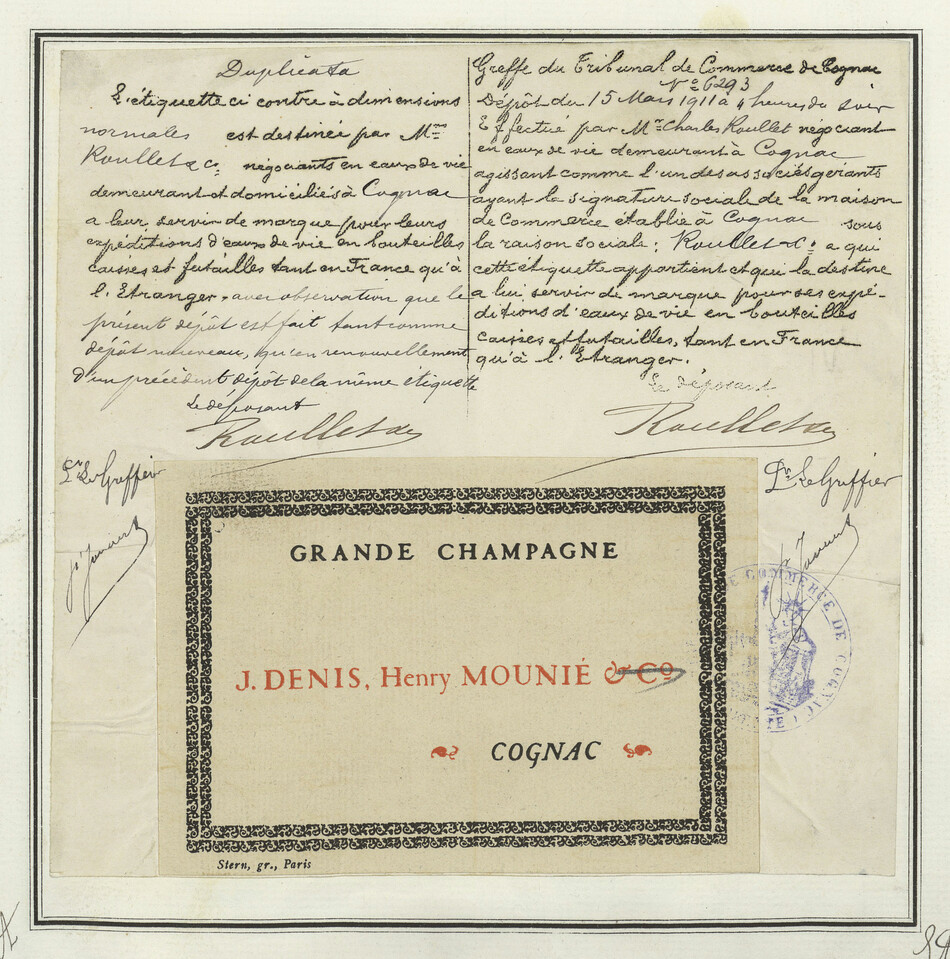 Duplicata
L'étiquette ci contre à dimensions
normales est destinée par Mrs
Roullet & Co négociants en eaux de vie
demeurant et domiciliés à Cognac
a leur servir de marque pour leurs
expéditions d'eaux de vie en bouteilles
caisses et futailles tant en France qu'à
l'Etranger, avec observation que le
présent dépôt est fait tant comme
dépôt nouveau, qu'en renouvellement
d'un précédent dépôt de la même étiquette
Le déposant
Roullet & Co
Pr Le Greffier
Greffe du Tribunal de Commerce de Cognac
No 6293
Dépôt du 15 Mars 1911 à 4 heures du soir
Effectué par Mr Charles Roullet négociant
en eaux de vie demeurant à Cognac
agissant comme l'un des associés gérants
ayant la signature sociale de la maison
de Commerce établie à Cognac sous
la raison sociale: Roullet & Co a qui
cette étiquette appartient et qui la destine
a lui servir de marque pour ses expé-
ditions d'eaux de vie en bouteilles
caisses et futailles, tant en France
qu'à l'Etranger.
Le déposant
Roullet & Co
Pr Le Greffier
GRANDE CHAMPAGNE
J. DENIS, Henry MOUNIÉ & Co
COGNAC
Stern, gr., Paris
DE COMMERCE DE COGNAC